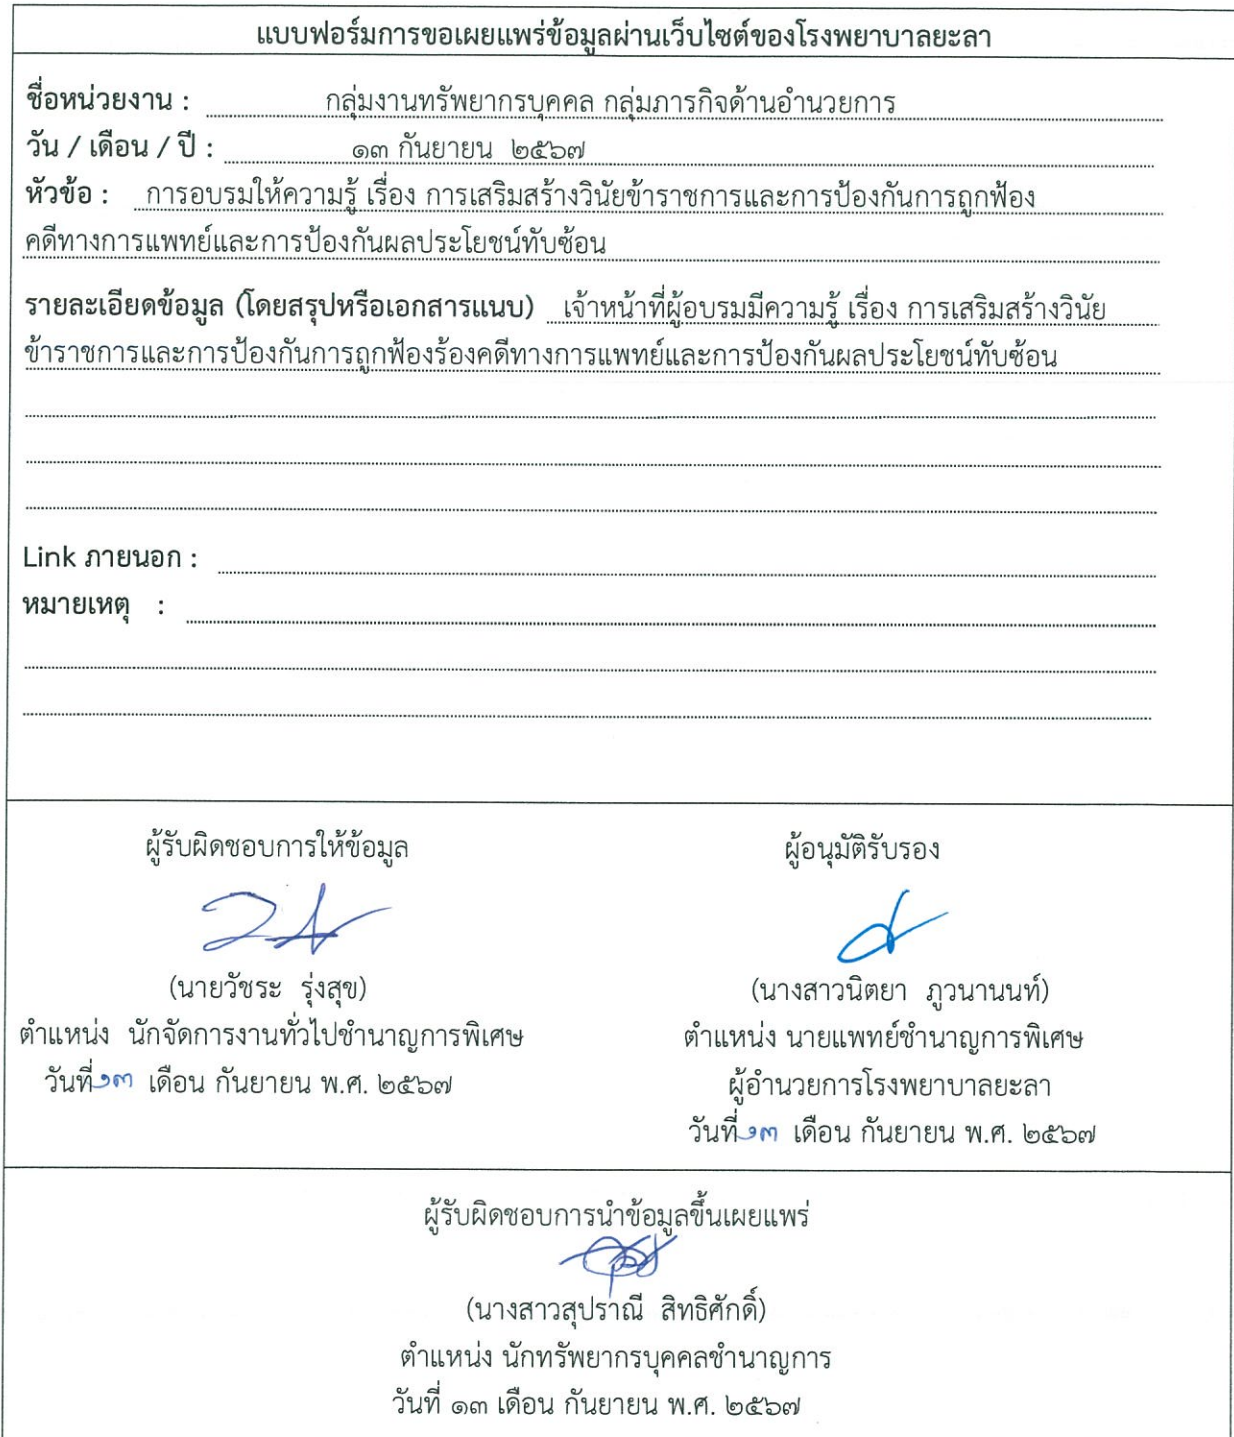 แบบฟอร์มการขอเผยแพร่ข้อมูลผ่านเว็บไซต์ของโรงพยาบาลยะลา
ชื่อหน่วยงาน : กลุ่มงานทรัพยากรบุคคล กลุ่มภารกิจด้านอำนวยการ
วัน / เดือน / ปี : ๑๓ กันยายน ๒๕๖๗
หัวข้อ : การอบรมให้ความรู้ เรื่อง การเสริมสร้างวินัยข้าราชการและการป้องกันการถูกฟ้อง
คดีทางการแพทย์และการป้องกันผลประโยชน์ทับซ้อน
รายละเอียดข้อมูล (โดยสรุปหรือเอกสารแนบ) เจ้าหน้าที่ผู้อบรมมีความรู้ เรื่อง การเสริมสร้างวินัย
ข้าราชการและการป้องกันการถูกฟ้องร้องคดีทางการแพทย์และการป้องกันผลประโยชน์ทับซ้อน
Link ภายนอก :
หมายเหตุ :
ผู้รับผิดชอบการให้ข้อมูล
(นายวัชระ รุ่งสุข)
ตำแหน่ง นักจัดการงานทั่วไปชำนาญการพิเศษ
วันที่ ๑๓ เดือน กันยายน พ.ศ. ๒๕๖๗
ผู้อนุมัติรับรอง
(นางสาวนิตยา ภูวนานนท์)
ตำแหน่ง นายแพทย์ชำนาญการพิเศษ
ผู้อำนวยการโรงพยาบาลยะลา
วันที่ ๑๓ เดือน กันยายน พ.ศ. ๒๕๖๗
ผู้รับผิดชอบการนำข้อมูลขึ้นเผยแพร่
(นางสาวสุปราณี สิทธิศักดิ์)
ตำแหน่ง นักทรัพยากรบุคคลชำนาญการ
วันที่ ๑๓ เดือน กันยายน พ.ศ. ๒๕๖๗